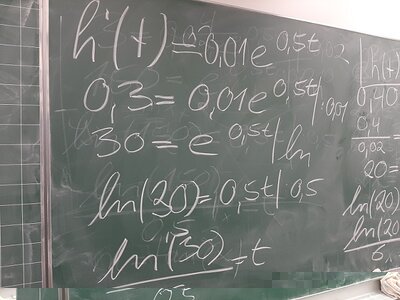 h'(t)=0,01e^0,5t
0,3=0,01e^0,5t |:0,01
30=e^0,5t |ln
ln(30)=0,5t |:0,5
ln(30)/0,5=t
h(t)
0,40
0,4/0,02
20=
ln(20)
ln(20